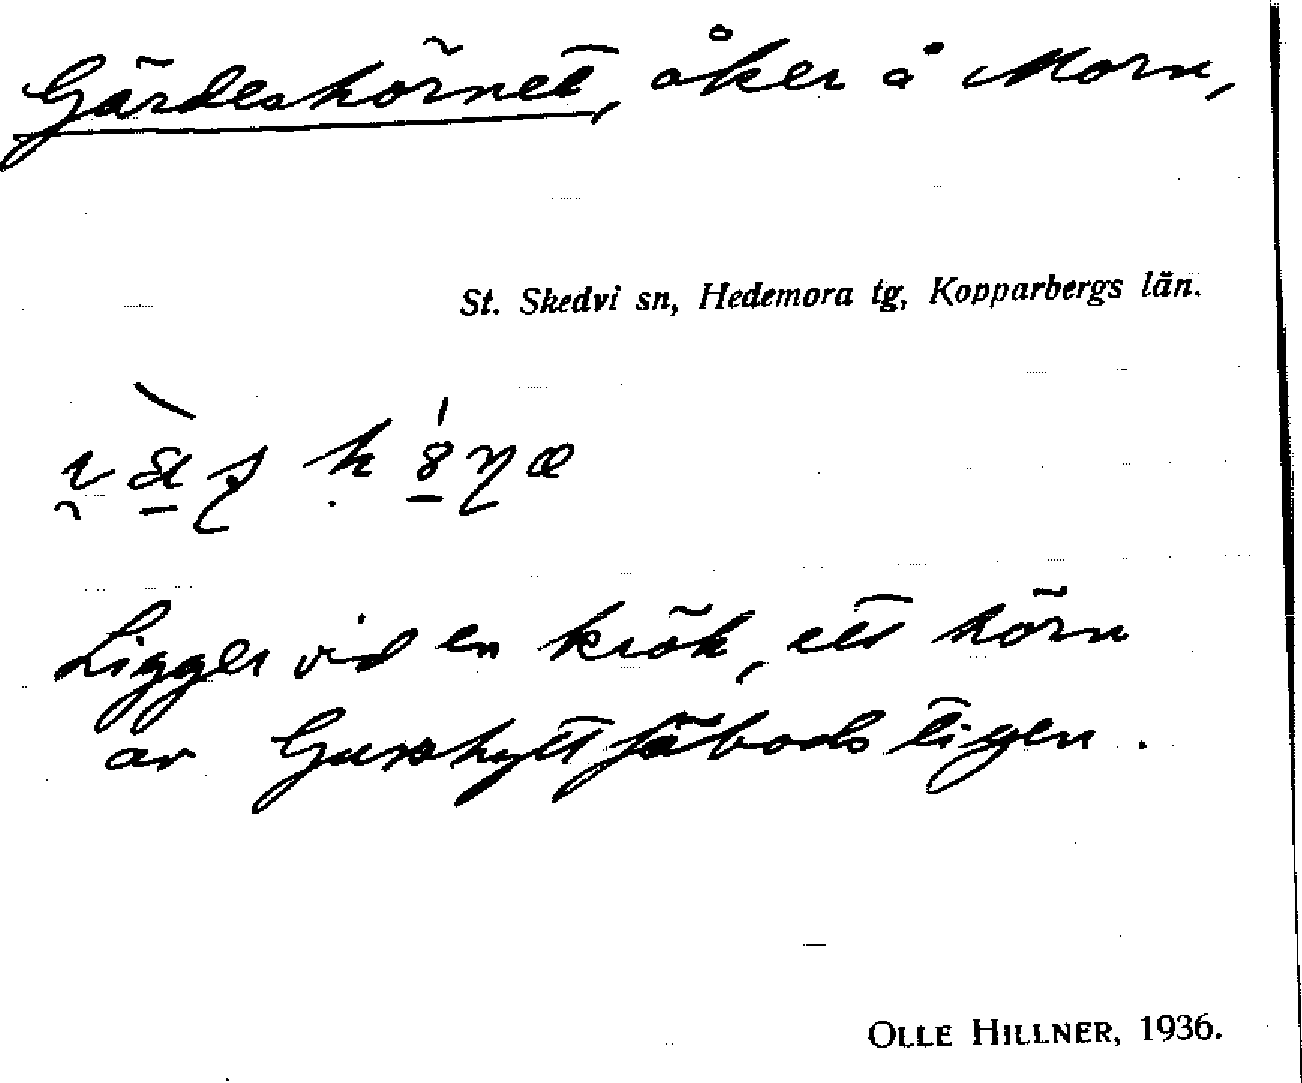 Gärdeshörnet, åker å Morn,
St. Skedvi sn, Hedemora tg, Kopparbergs län.
Ligger vid en krök, ett hörn
av fäbodstigen.
OLLE HILLNER, 1936.